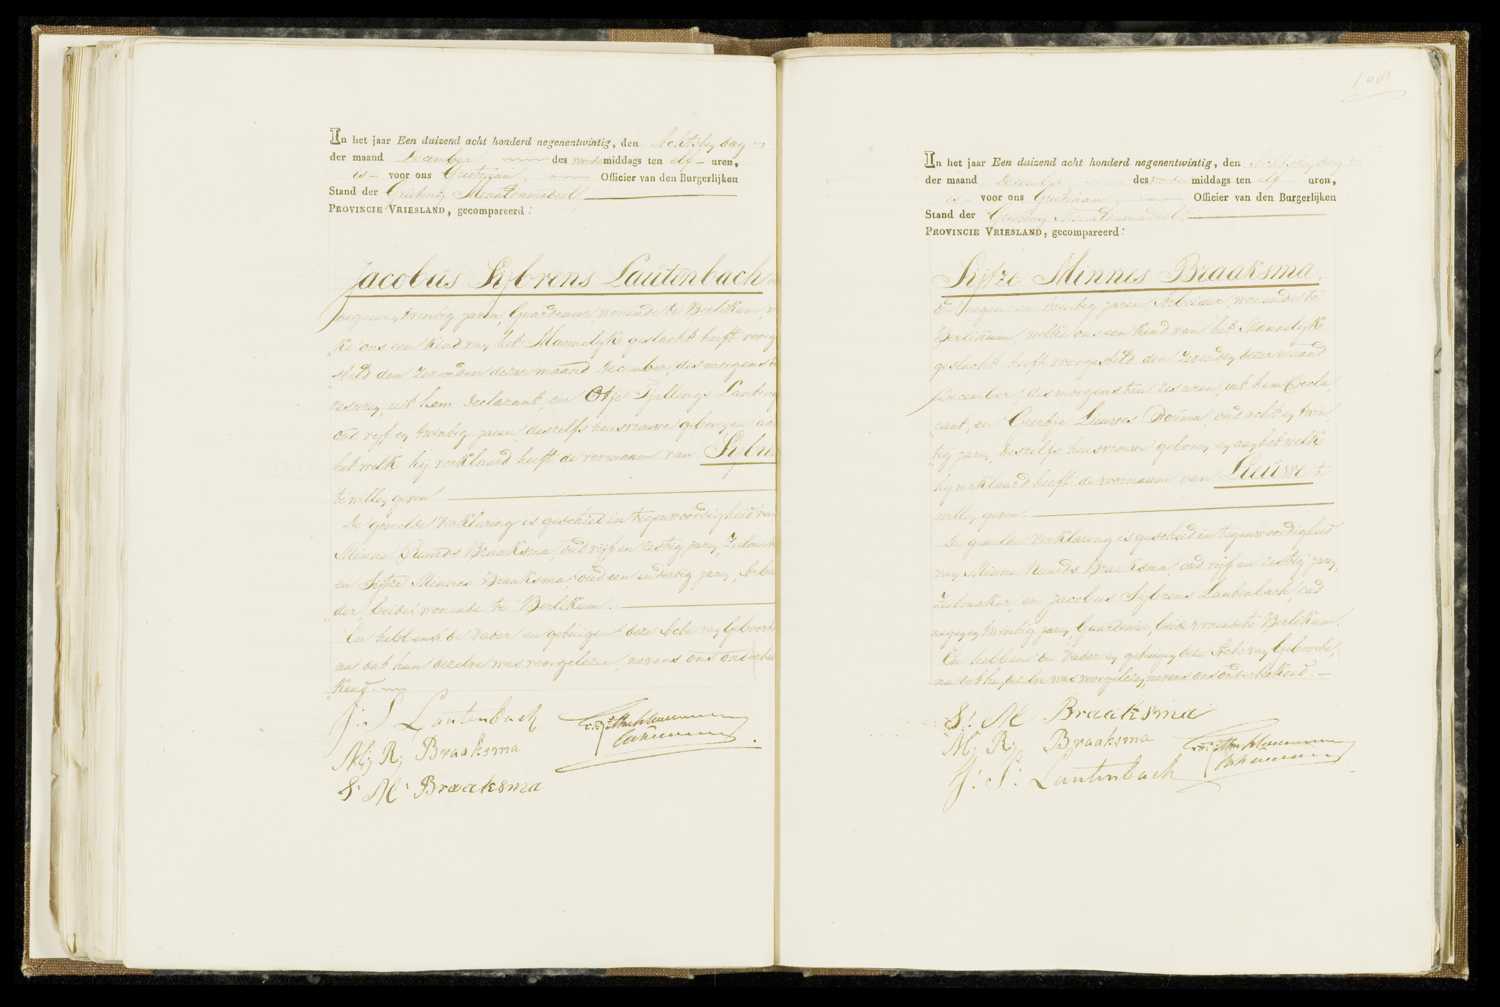 In het jaar Een duizend acht honderd negenentwintig, den Achtsten dag
der maand December des voormiddags ten elf uren,
is voor ons Grietman, Officier van den Burgerlijken
Stand der Grietenij Menaldumadeel,
PROVINCIE VRIESLAND, gecompareerd:
Jacobus Sijbrens Lautenbach
negen en twintig jaren, Guardenier, woonende te Berlikum,
ke ons een kind van het Mannelyke geslacht heeft voorge
steld den dezer maand December, des morgens te
zes uren, uit hem Declarant, en Otje Tjallings
oud vijf en twintig jaren, deszelfs huisvrouw geboren, aan
het welk hij verklaard heeft de voornaam van Sijbre
te willen geven
De gemelde verklaring is geschied in tegenwoordigheid van
Minne Ruurds Braaksma, oud vijf en zestig jaren,
en Sijtze Minnes Braaksma, oud een en dertig jaren,
der, beide woonende te Berlikum.
En hebben de vader en getuigen deze Acte van Geboorte
na dat hun dezelve was voorgelezen, nevens ons ondertee
kend
J: S: Lautenbach
M: R: Braaksma
S: M: Braaksma
108
In het jaar Een duizend acht honderd negenentwintig, den Achtsten dag
der maand December des voor middags ten elf uren,
is voor ons Grietman, Officier van den Burgerlijken
Stand der Grietenij Menaldumadeel,
PROVINCIE VRIESLAND, gecompareerd:
Sijtze Minnes Braaksma,
jaren, woonende te
Berlikum, welke ons een kind van het Mannelyke
geslacht heeft voorgesteld den dezer maand
December, des morgens ten zes uren, uit hem Decla
rant, en Lieuwes Douma, oud acht en twin
tig jaren, deszelfs huisvrouw geboren, en aan het welk
hij verklaard heeft de voornaam van Lieuwe te
willen geven.
De gemelde verklaring is geschied in tegenwoordigheid
van Minne Ruurds Braaksma, oud vijf en zestig jaren,
en Jacobus Sijbrens Lautenbach, oud
negen en twintig jaren, Guardenier, beide woonende te Berlikum.
En hebben de vader en getuigen deze Acte van Geboorte,
na dat hun dezelve was voorgelezen, nevens ons onderteekend.
S: M: Braaksma
M: R: Braaksma
J: S: Lautenbach